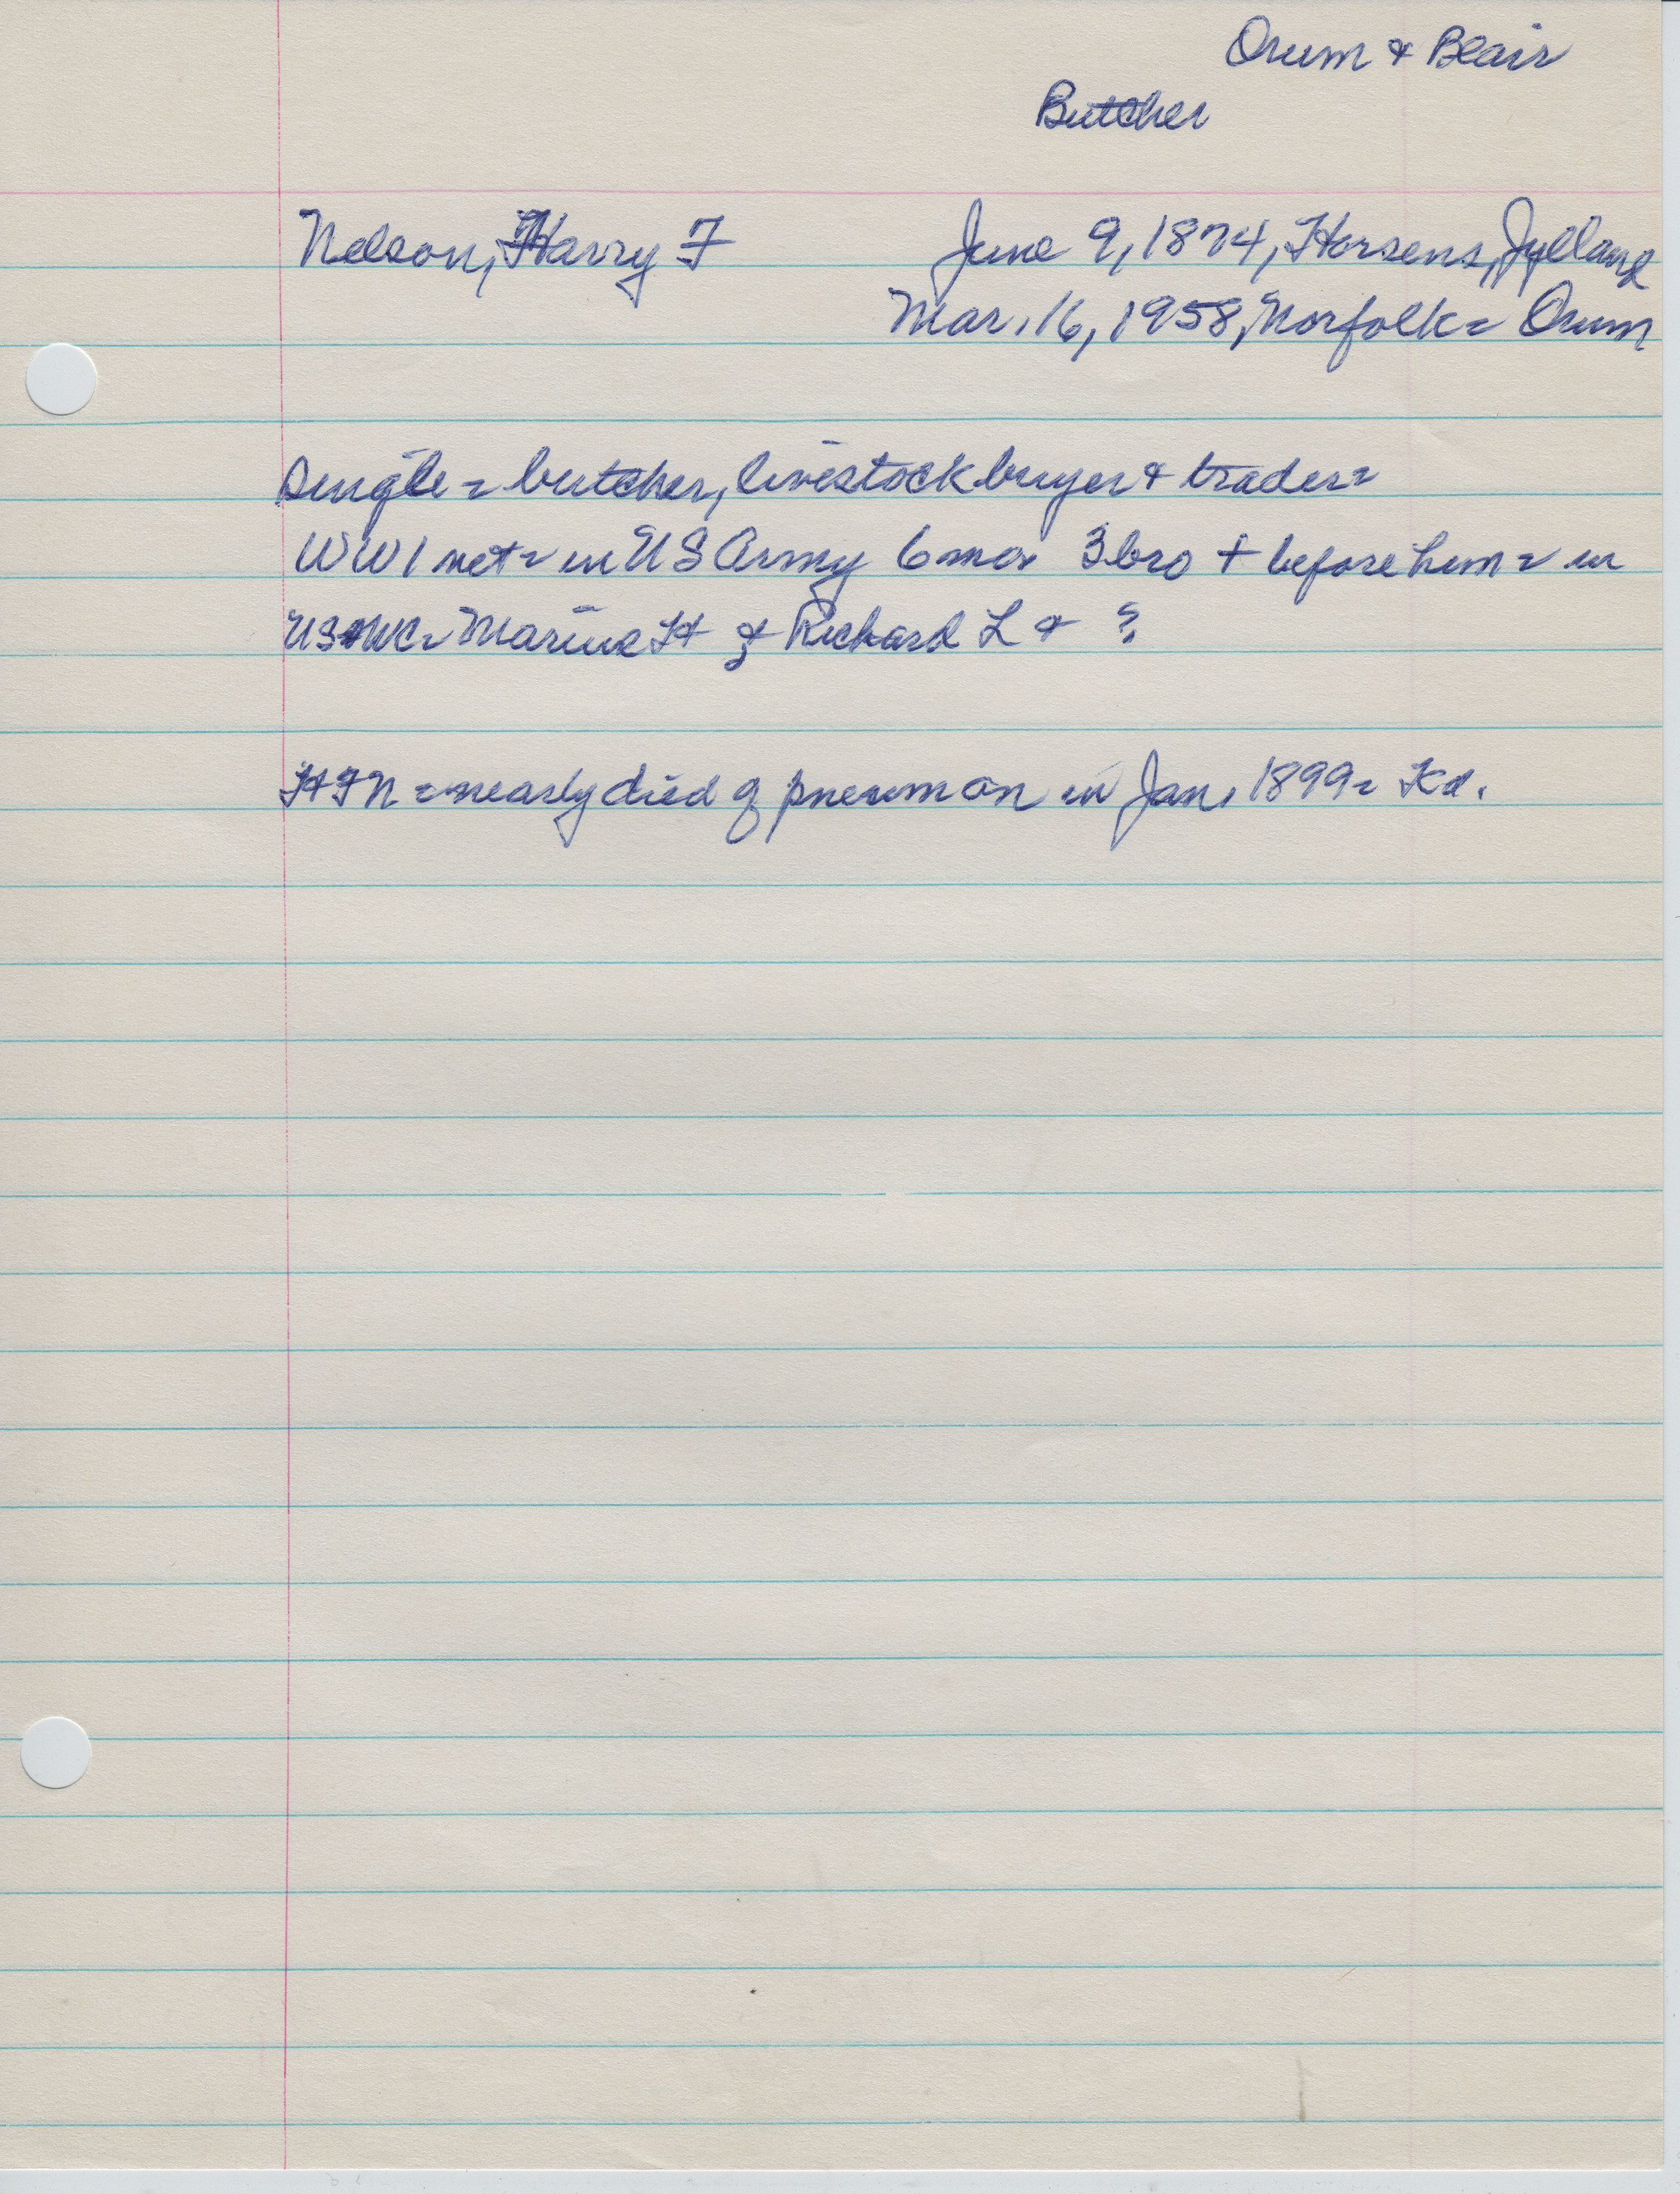 Orum & Blair
Butcher
Nelson, Harry F
June 9, 1874, Horsens, Jylland
Mar. 16, 1958, Norfolk = Orum
Single = butcher, livestock buyer & trader =
WW1 vet = in US Army 6 mos 3 bro + before him = in
Marine H & Richard L & ?
HFN = nearly died of pneumon in Jan, 1899 = Kd.